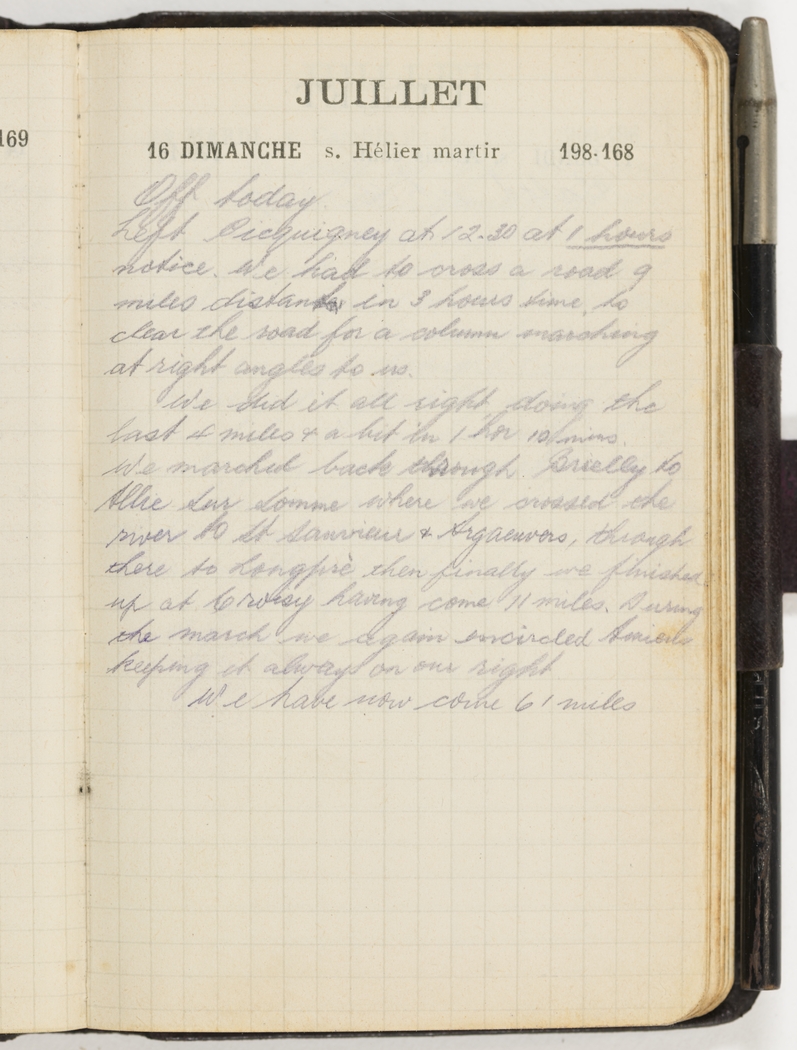 169
JUILLET
16 DIMANCHE s. Hélier martir 198-168
Off today
Left Picquigney at 12-30 at 1 hours
notice. We had to cross a road 9
miles distant in 3 hours time to
clear the road for a column marching
at right angles to us.
We did it all right, doing the
last 4 miles & a bit in 1 hor 10 mins.
We marched back through. Brielly to
Allie sur Somme where we crossed the
river to St Sauvieur & Argaeuvers, through
there to Longprè then finally we finished
up at Croisy having come 11 miles. During
the march we again encircled Amiens
keeping it always on our right
We have now come 61 miles